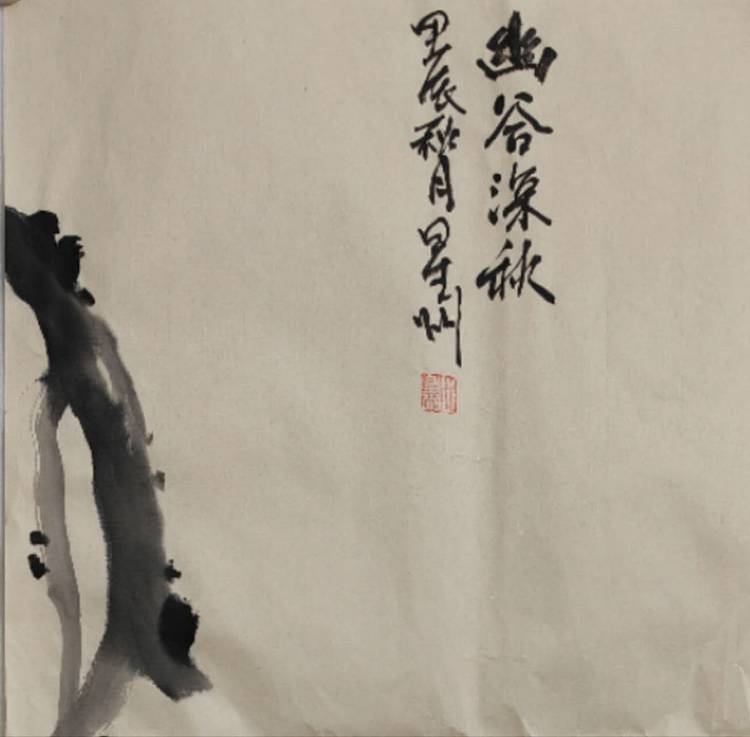 幽谷深秋
甲辰秋月星州